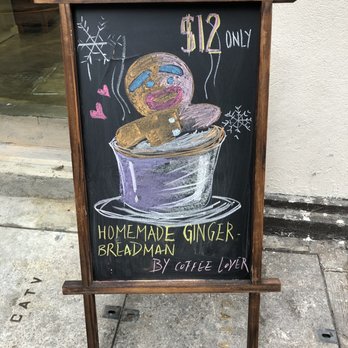 $12 ONLY
HOMEMADE GINGER-
BREADMAN
BY COFFEE LOVER
CATV